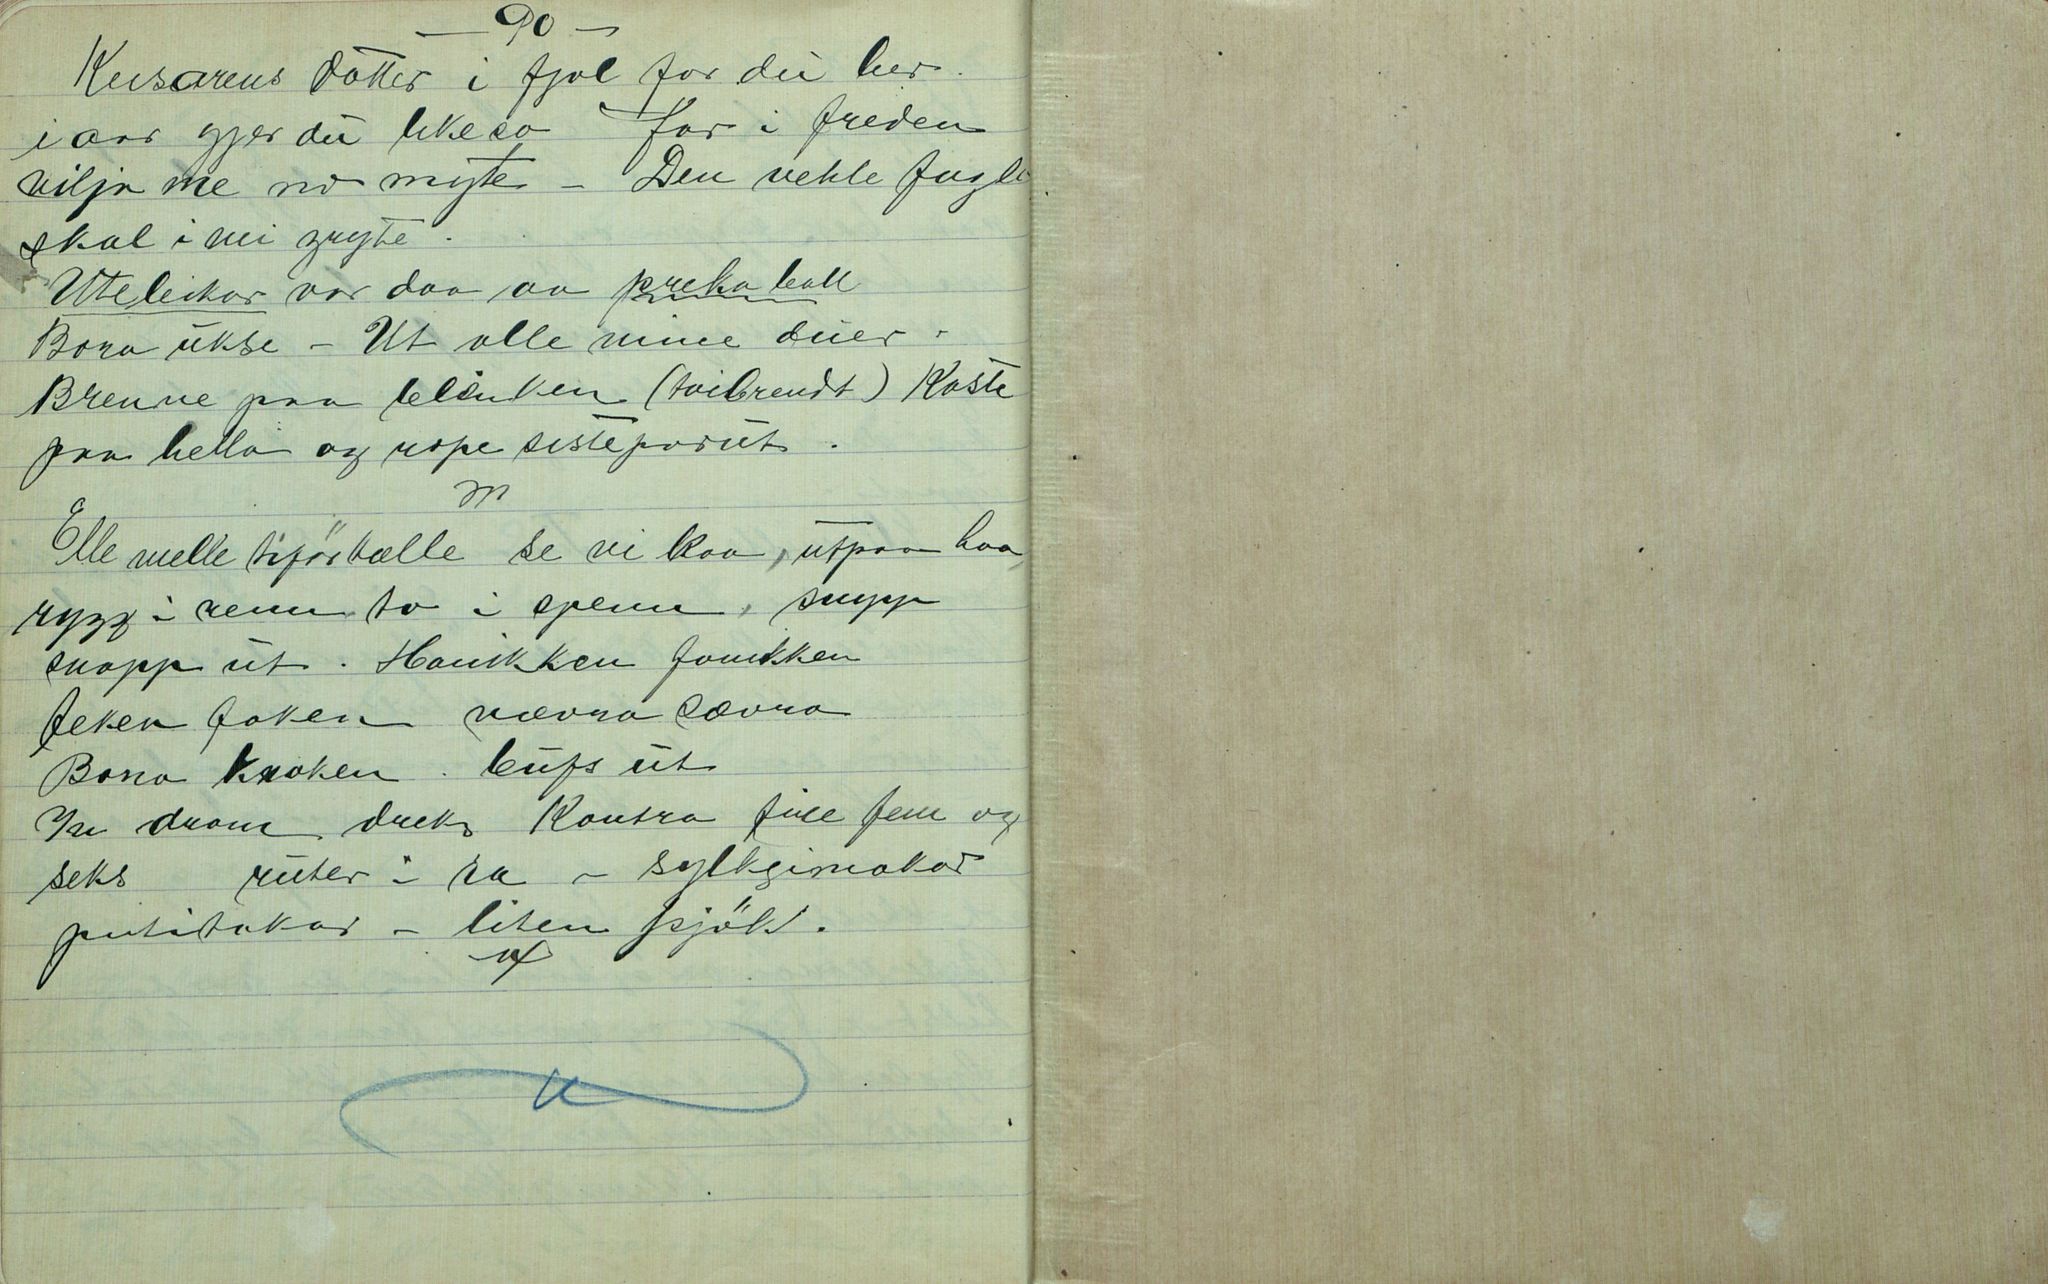 - 90 -
Keisarens dotter i fjol for du her.
i aar gjer du likeso for i freden
vilja me no myte - Den vehle fugle
skal i mi gryte.
Uteleikar var daa aa preka ball
Bora ukse - Ut alle mine duer.
Brenne paa blinken (toibrendt) Kaste
paa hella og rope sisteparut.
Elle melle tiförtælle se vi kaa, utpaa haa,
rygg i renn to i spenn, snipp
snapp ut. Hanikken fanikken
feken faken nævra sævra
Bona kroken. bufs ut
In dram dreks Kontra fire fem og
seks ruter i ra - sylkgimakar
putitakar - liten pjök.